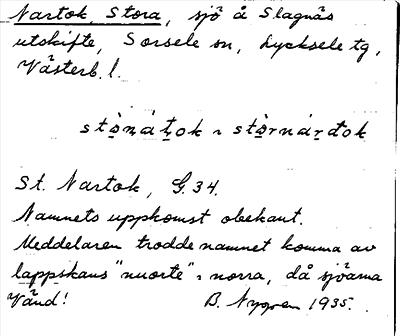 Nartok, Stora, sjö å Slagnäs
utskifte, Sorsele sn, Lycksele tg,
Västerb. l.
stòṇáṭok ~ stòrnárđok
St. Nartok, G. 34.
Namnets uppkomst obekant.
Meddelaren trodde namnet komma av
lappskans "nuorte" = norra, då sjöarna
Vänd! B. Nygren 1935.